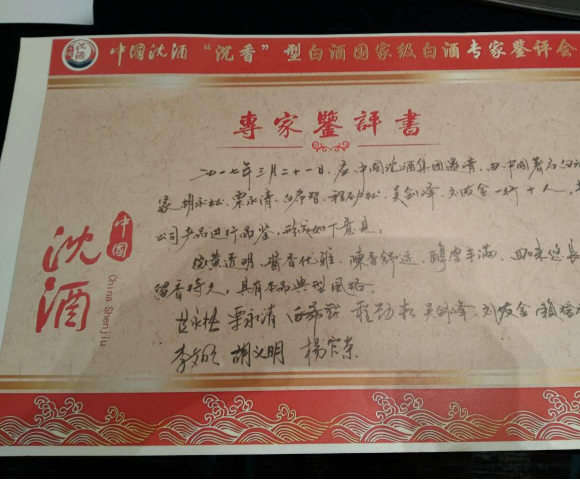 中国沈酒“沉香”型白酒国家级白酒专家鉴评会
專家鑒評書
二〇一七年三月二十一日，应中国沈酒集团邀请，由中国著名白酒
家胡永松、栗永清、白希智、程劲松、吴剑峰、刘友金一行十人，
公司产品进行品鉴，形成如下意见。
微黄透明、酱香优雅、陳香舒适、醇厚丰满、回味悠長
留香持久，具有本品典型風格。
胡永松 栗永清 白希智 程劲松 吴剑峰 刘友金
胡义明 楊官荣
中国
沈酒
China Shenjiu